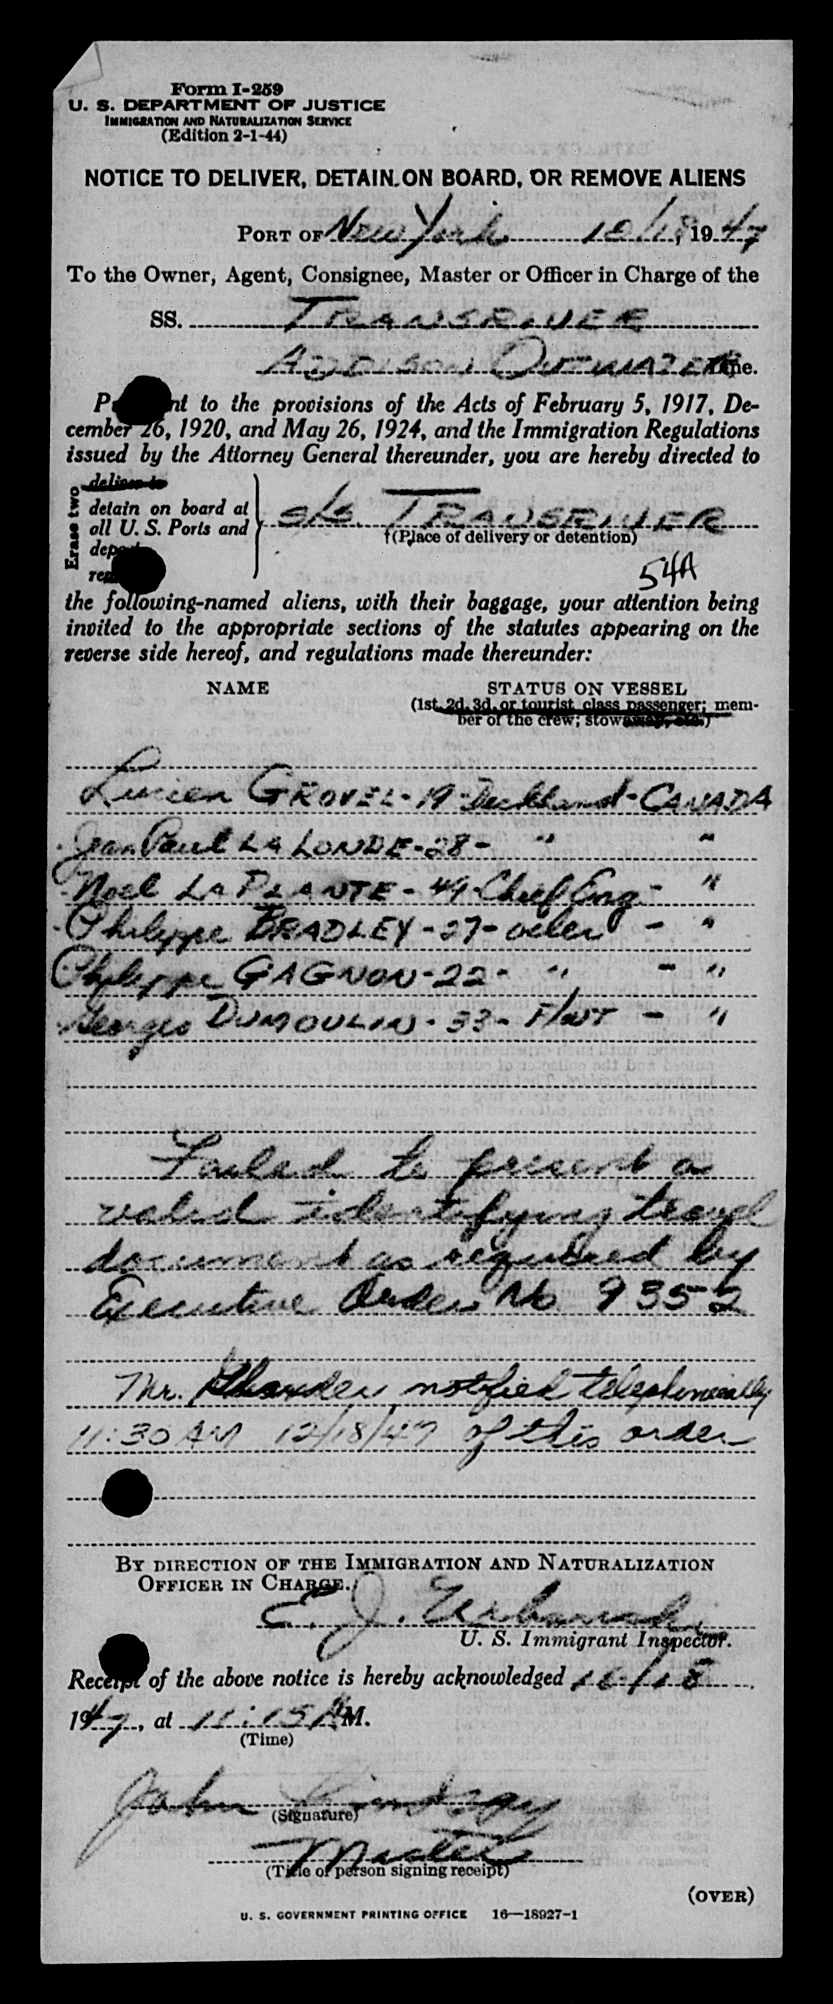 Form I-259
U. S. DEPARTMENT OF JUSTICE
IMMIGRATION AND NATURALIZATION SERVICE
(Edition 2-1-44)
NOTICE TO DELIVER, DETAIN ON BOARD, OR REMOVE ALIENS
PORT OF New York 12/18, 1947
To the Owner, Agent, Consignee, Master or Officer in Charge of the
SS. TRANSRIVER
ADDISON OUTWATER
to the provisions of the Acts of February 5, 1917, De-
cember 26, 1920, and May 26, 1924, and the Immigration Regulations
issued by the Attorney General thereunder, you are hereby directed to
Erase two
deliver to
detain on board at
all U. S. Ports and
S/S. TRANSRIVER
†(Place of delivery or detention)
54A
the following-named aliens, with their baggage, your attention being
invited to the appropriate sections of the statutes appearing on the
reverse side hereof, and regulations made thereunder:
NAME STATUS ON VESSEL
(1st, 2d, 3d, or tourist class passenger; mem-
ber of the crew; stowaway, etc.)
Lucien GROVEL - 19 - Deckhand - CANADA
Jean Paul LA LONDE - 28 - " "
Noel LA PLANTE - 49 - Chief Eng - "
Philippe BRADLEY - 27 - oiler - "
Philippe GAGNON - 22 - " - "
Georges DUMOULIN - 33 - F/WT - "
Failed to present a
valid identifying travel
document as required by
Executive Order No 9352
Mr. notified telephonically
11:30 AM 12/18/47 of this order
BY DIRECTION OF THE IMMIGRATION AND NATURALIZATION
OFFICER IN CHARGE.
E. J. Urbanski
U. S. Immigrant Inspector.
Receipt of the above notice is hereby acknowledged 12/18
1947, at 11:15 AM.
(Time)
John Lindsay
(Signature)
Master
(Title of person signing receipt)
(OVER)
U. S. GOVERNMENT PRINTING OFFICE 16—18927-1